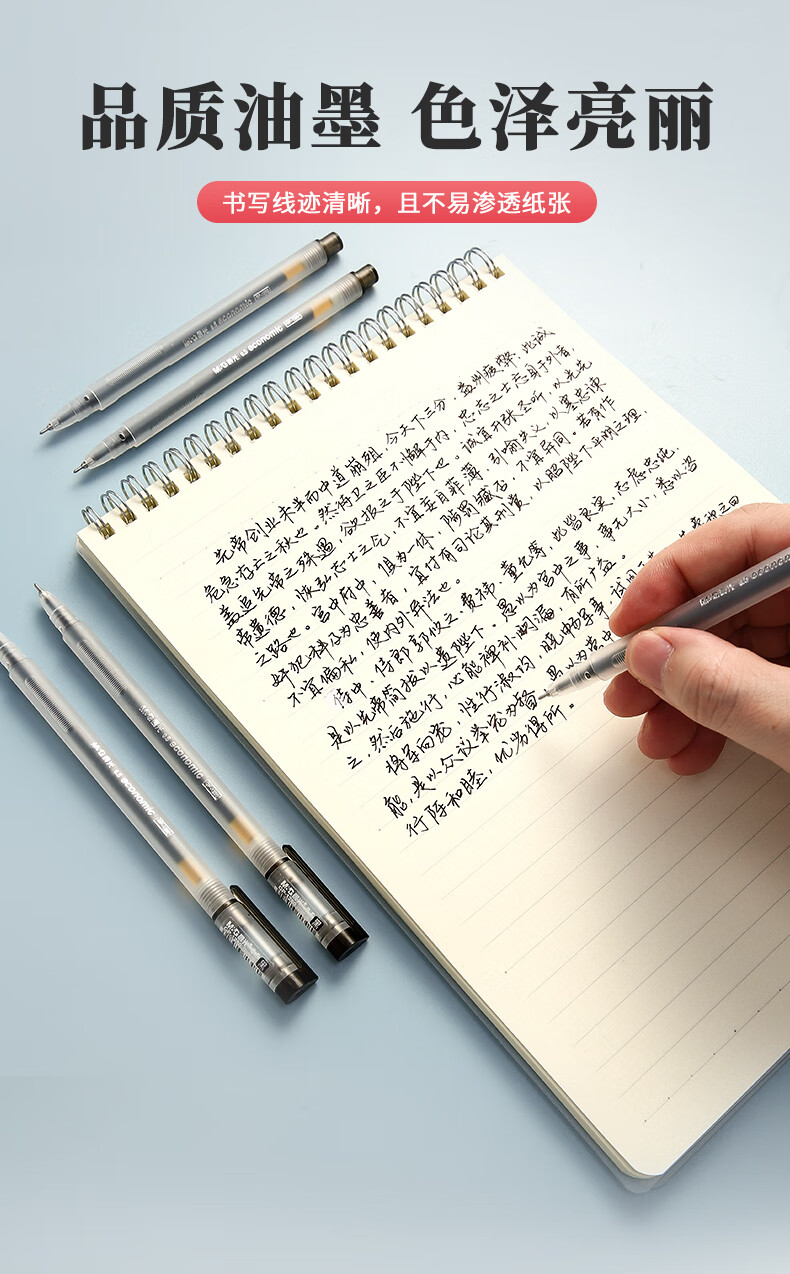 品质油墨 色泽亮丽
书写线迹清晰，且不易渗透纸张
M&G晨光 0.5 economic
M&G晨光 0.5 economic
先帝创业未半而中道崩殂，今天下三分，益州疲弊，此诚
危急存亡之秋也。然侍卫之臣不懈于内，忠志之士忘身于外者
盖追先帝之殊遇，欲报之于陛下也。诚宜开张圣听，以光先
帝遗德，恢弘志士之气，不宜妄自菲薄，引喻失义，以塞忠谏
之路也。宫中府中，俱为一体，陟罚臧否，不宜异同。若有作
奸犯科及为忠善者，宜付有司论其刑赏，以昭陛下平明之理，
不宜偏私，使内外异法也。
侍中、侍郎郭攸之、费祎、董允等，此皆良实，志虑忠纯，
是以先帝简拔以遗陛下。愚以为宫中之事，事无大小，悉以咨
之，然后施行，必能裨补阙漏，有所广益。
将军向宠，性行淑均，晓畅军事，试用于 先帝称之曰
能，是以众议举宠为督 愚以为营中
行阵和睦，优劣得所。
M&G晨光 0.5 economic
M&G晨光 0.5 economic
M&G晨光 黑
M&G晨光 黑